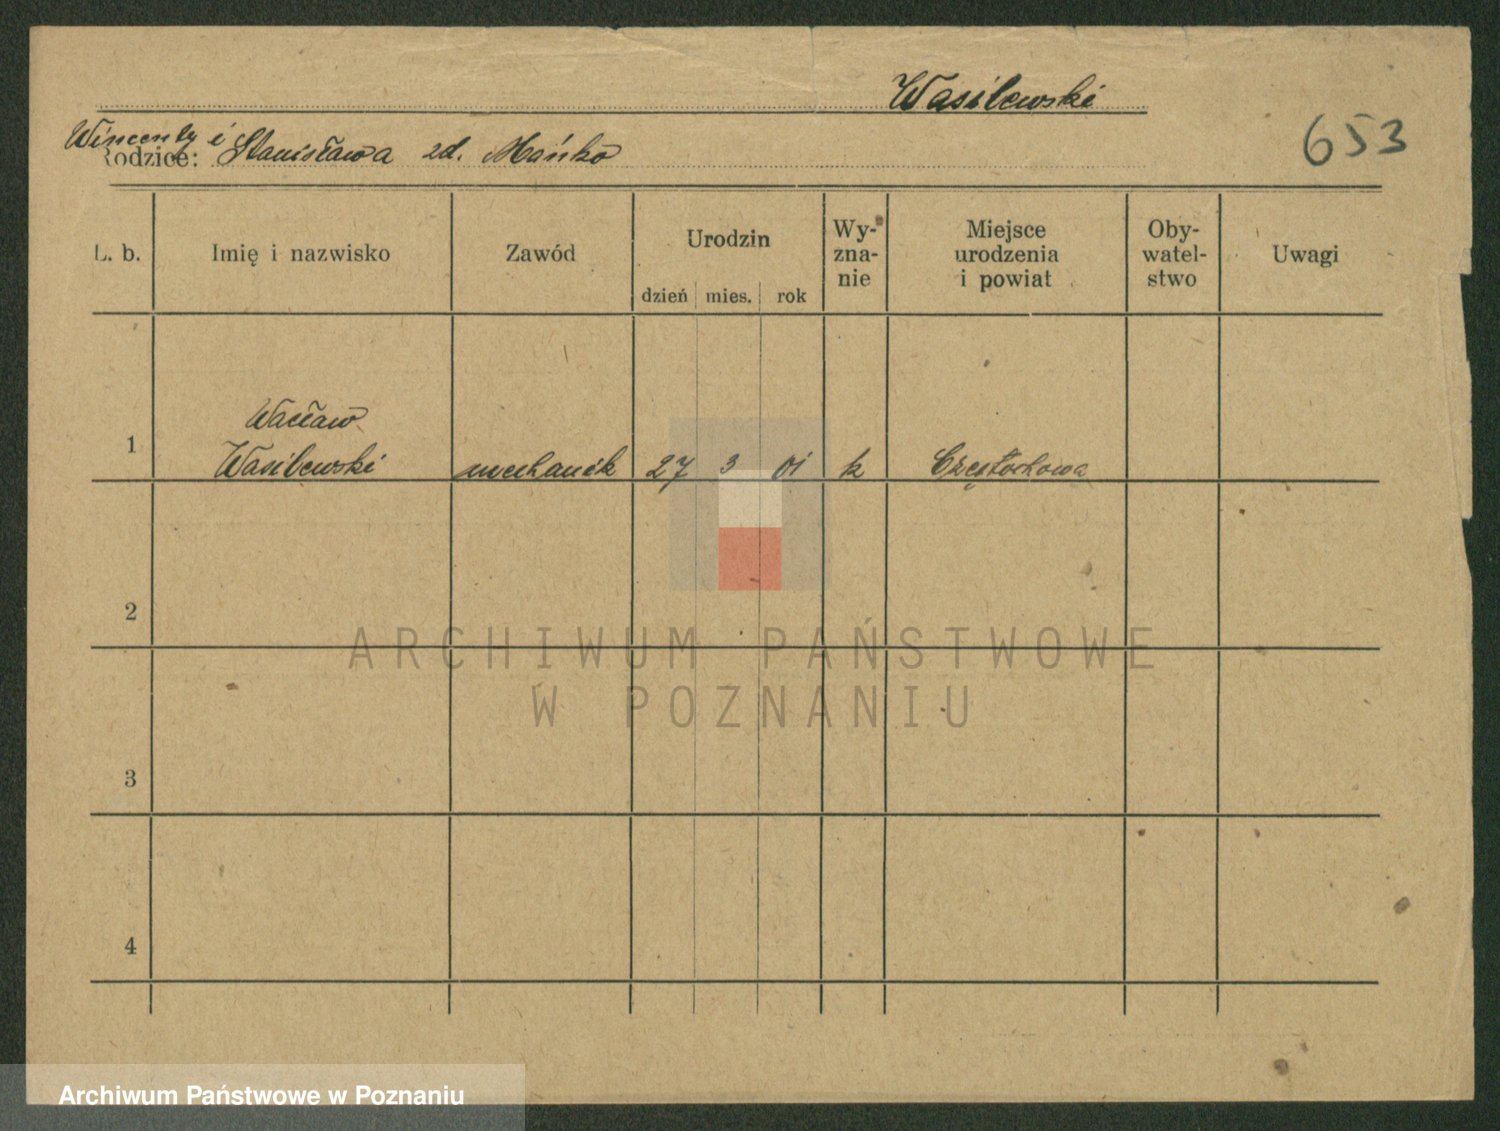 Wasilewski
653
Wincenty i
Rodzice: Stanisława zd. Mańko
L. b.
Imię i nazwisko
Zawód
Urodzin
dzień mies. rok
Wy-
zna-
nie
Miejsce
urodzenia
i powiat
Oby-
watel-
stwo
Uwagi
1
Wacław
Wasilewski
mechanik
27 3 01
k
Częstochowa
2
ARCHIWUM PAŃSTWOWE
W POZNANIU
3
4
Archiwum Państwowe w Poznaniu